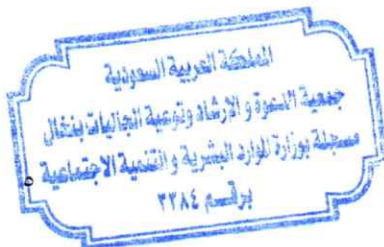 المملكة العربية السعودية
جمعية الدعوة والارشاد وتوعية الجاليات بنفال
مسجلة بوزارة الموارد البشرية و التنمية الاجتماعية
برقم ٣٣٨٤